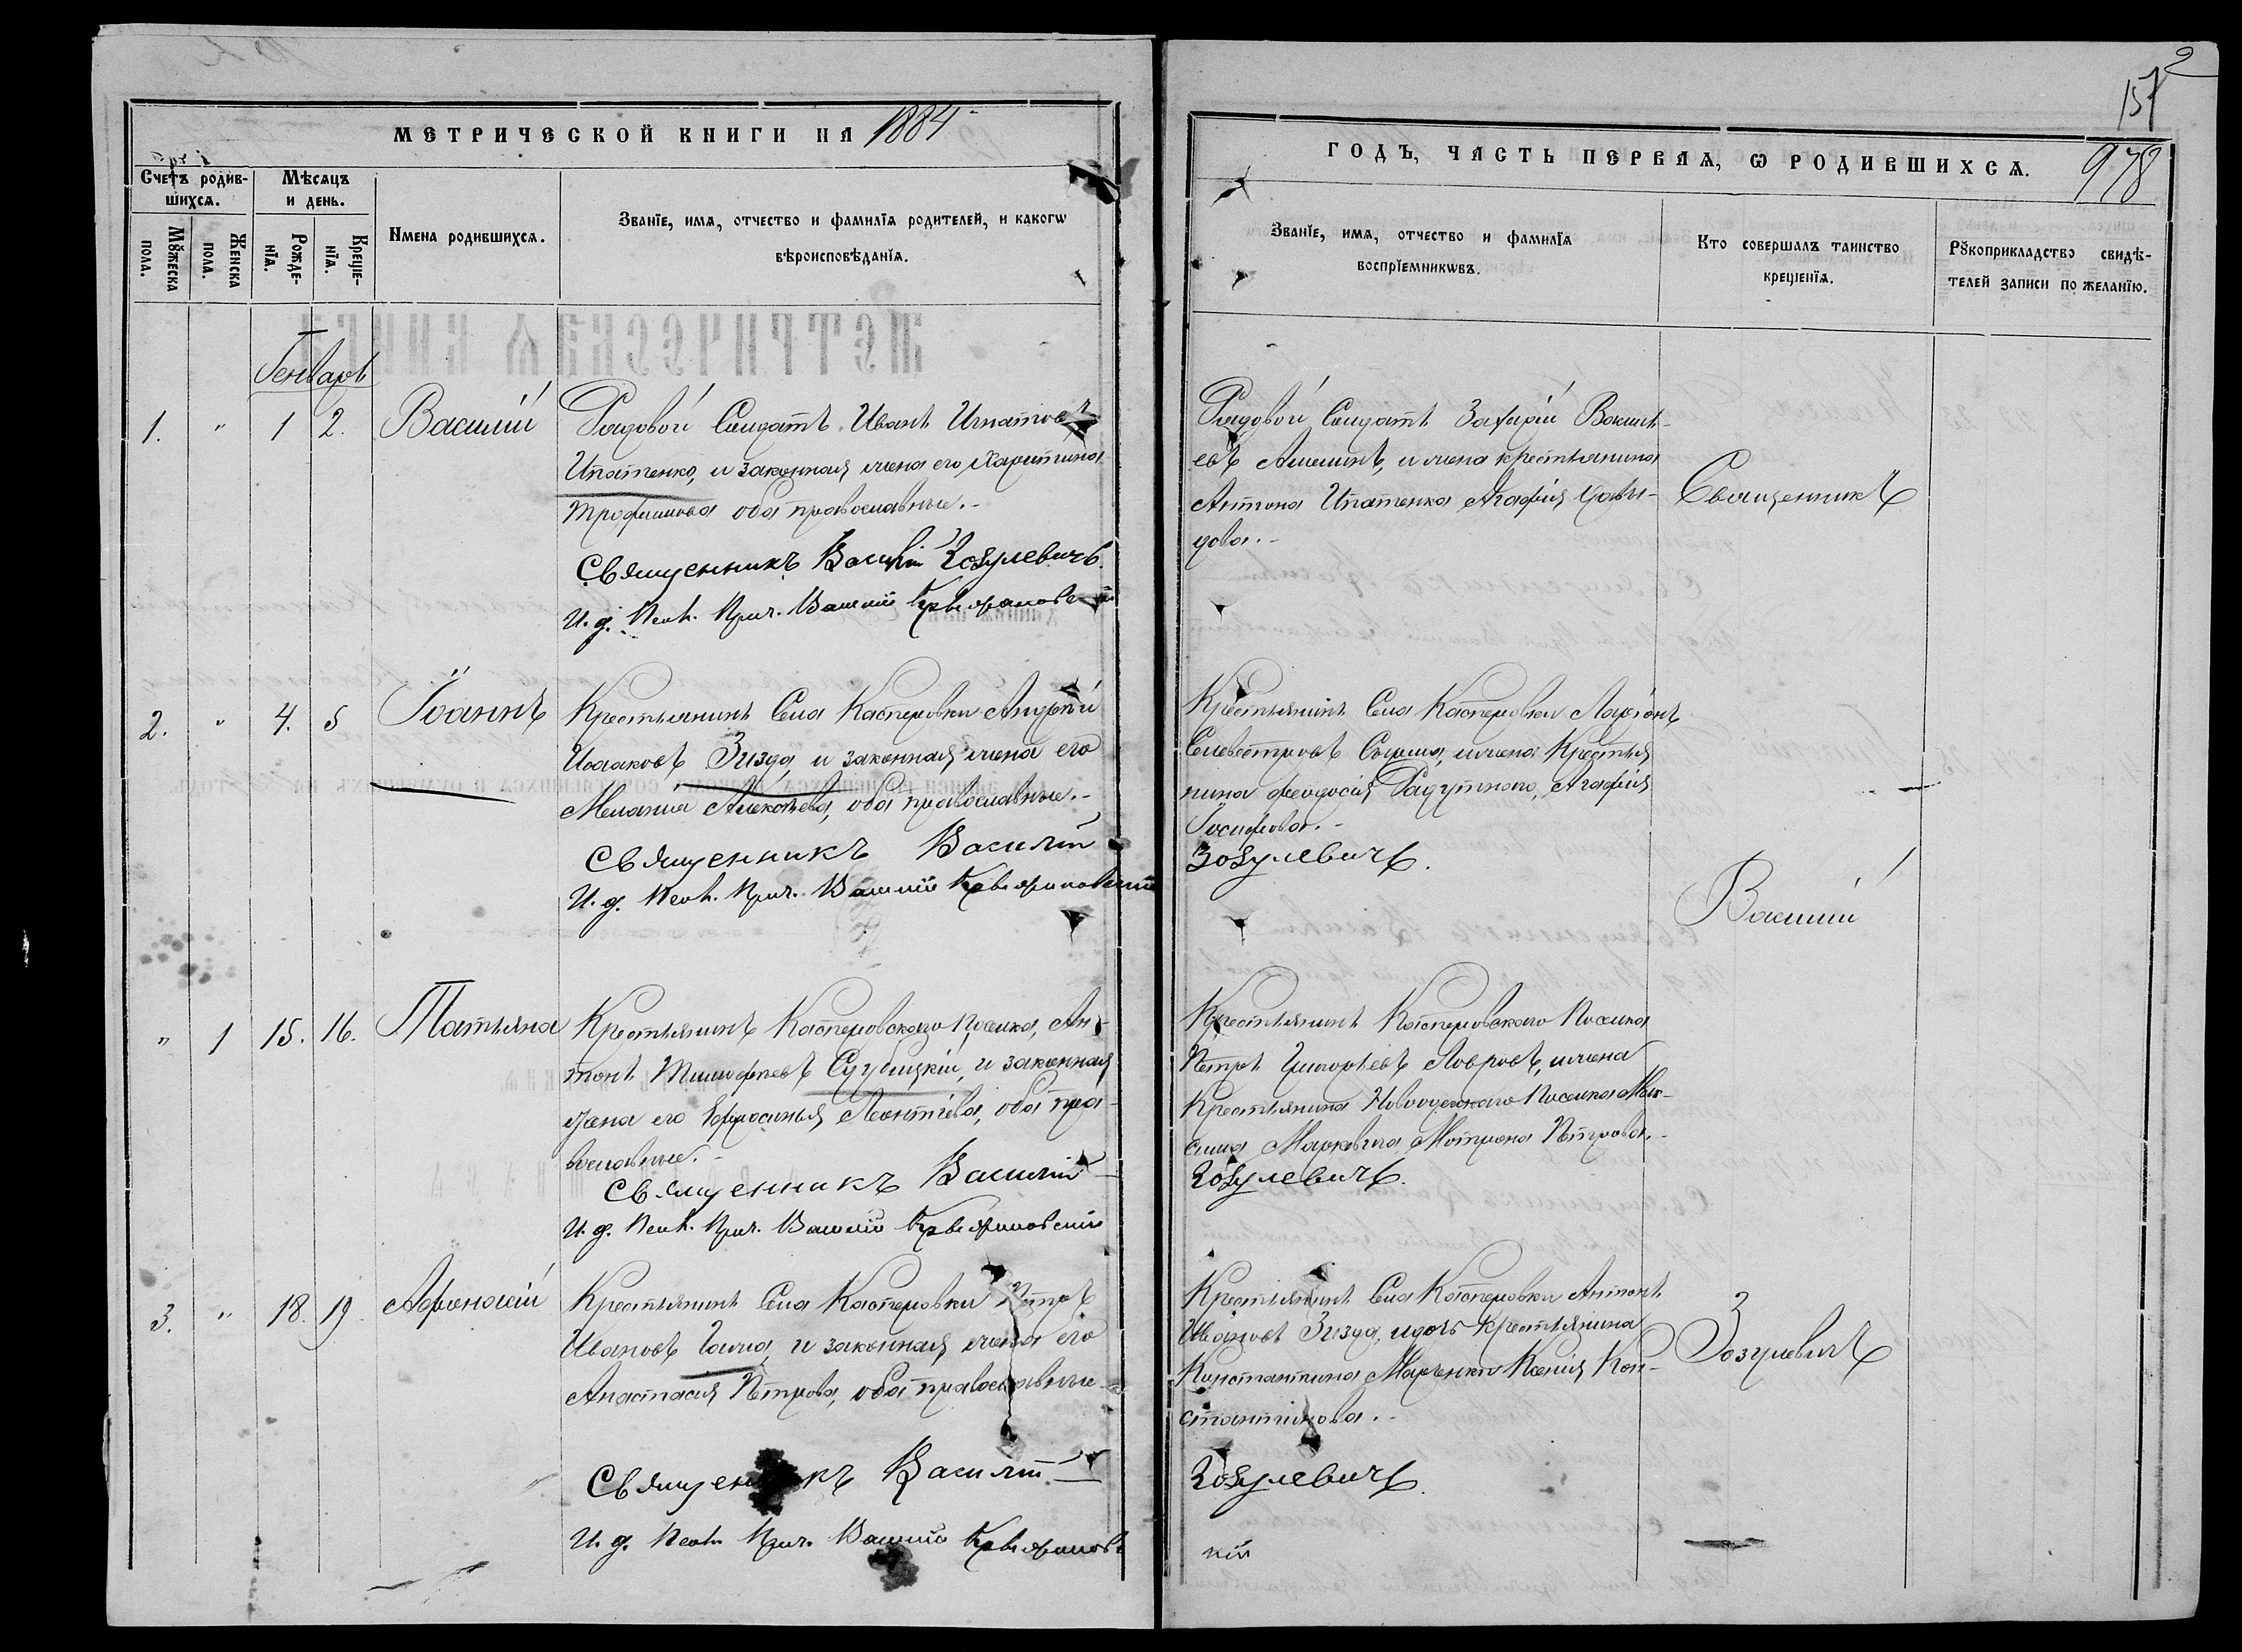 2
157
МЕТРИЧЕСКОЙ КНИГИ НА 1884
ГОДЪ, ЧАСТЬ ПЕРВАЯ, Ѡ РОДИВШИХСѦ.
978
Счетъ родив-
шихсѧ.
Мѣсяцъ
и день.
Имена родившихсѧ.
Званїе, имѧ, отчество и фамилїѧ родителей, и какогѡ
вѣроисповѣданїѧ.
Мꙋжеска
пола.
Женска
пола.
Рожде-
нїѧ.
Креще-
нїѧ.
Званїе, имѧ, отчество и фамилїѧ
воспрїемникѡвъ.
Кто совершалъ таинство
крещенїѧ.
Рꙋкоприкладство свидѣ-
телей записи по желанїю.
Генварь
1. " 1 2. Василій
Рядовой Солдатъ Иванъ Игнатовъ
Ипатенко, и законная жена его Харитина
Трофимова оба православные.-
Священникъ Василій Зозулевичъ.
И. д. Псал. Прич. Василій
Рядовой Солдатъ Захарій Василь-
евъ и жена крестьянина
Антона Ипатенка Агафія Давы-
дова.-
Священникъ
2. " 4. 5 Іоаннъ
Крестьянинъ Села Касперовки Андрей
Исааковъ Зизда, и законная жена его
Меланія Алексѣева, оба православные.-
Священникъ Василій
И. д. Псал. Прич. Василій
Крестьянинъ Села Касперовки Ларіонъ
Селивестровъ и жена Крестья
нина Феодосія Агафія
Іосифова.-
Зозулевичъ.
Василій
" 1 15. 16. Татьяна
Крестьянинъ Касперовского Поселка, Ан-
тонъ Тимофеевъ Сугубицкій, и законная
жена его Ефросинья Леонтіева, оба пра-
вославные.-
Священникъ Василій
И. д. Псал. Прич. Василій
Крестьянинъ Касперовского Поселка
Петръ Григорьевъ Лавровъ, и жена
Крестьянина Поселка Мак-
сима Мотрона Петрова.-
Зозулевичъ.
3. " 18. 19 Афанасій
Крестьянинъ Села Касперовки Петръ
Ивановъ и законная жена его
Анастасія Петрова, оба православные-
Священникъ Василій
И. д. Псал. Прич. Василій
Крестьянинъ Села Касперовки Антонъ
Ивановъ Зизда, и дочь Крестьянина
Константина Марченко Ксенія Кон-
стантинова.-
Зозулевичъ.
кій
Зозулевичъ